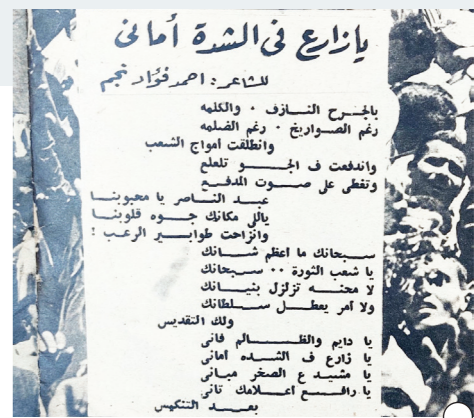 يا زارع فى الشدة أمانى
للشاعر : احمد فؤاد نجم
بالجرح النازف ٠ والكلمه
رغم الصواريخ ٠ رغم الضلمه
وانطلقت أمواج الشعب
واندفعت ف الجو تلعلع
وتغطى على صوت المدفع
عبد الناصر يا محبوبنا
ياللى مكانك جوه قلوبنا
وانزاحت طوابير الرعب !
سبحانك ما اعظم شانك
يا شعب الثورة ٠٠ سبحانك
لا محنه تزلزل بنيانك
ولا أمر يعطل سلطانك
ولك التقديس
يا دايم والظالم فانى
يا زارع ف الشده أمانى
يا مشيد ع الصخر مبانى
يا رافع اعلامك تانى
بعد التنكيس